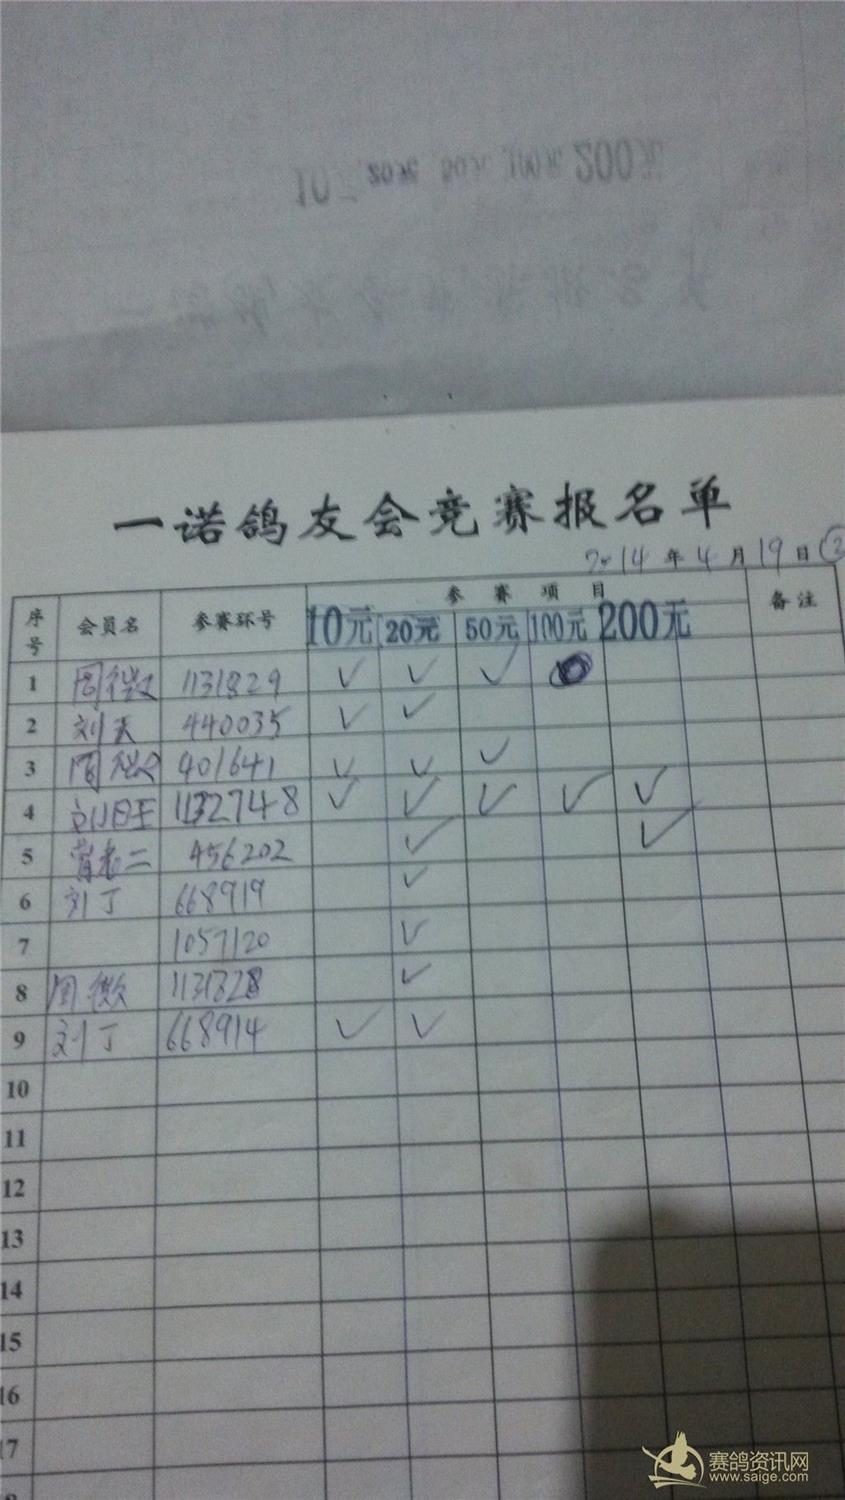 10元 20元 50元 100元 200元
一诺鸽友会竞赛报名单
2014年4月19日②
序号 会员名 参赛环号 参赛项目 备注
10元 20元 50元 100元 200元
1 周微 1131829 ✓ ✓ ✓
2 刘天 440035 ✓ ✓
3 周微 401641 ✓ ✓ ✓
4 1132748 ✓ ✓ ✓ ✓ ✓
5 肖老二 456202 ✓ ✓
6 刘丁 668919 ✓
7 1057120 ✓
8 周微 1131828 ✓
9 刘丁 668914 ✓ ✓
10
11
12
13
14
15
16
17
赛鸽资讯网
www.saige.com